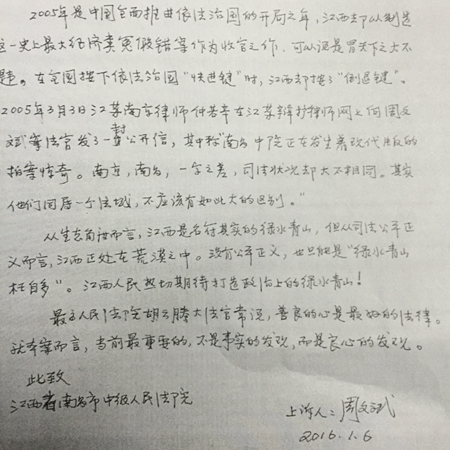 2005年是中国全面推进依法治国的开局之年，江西却以制造
这一史上最大经济类冤假错案作为收官之作，可以说是冒天下之大不
韪。在全国按下依法治国“快进键”时，江西却按了“倒退键”。
2005年3月3日江苏南京律师仲若辛在江苏辩护律师网上向周文
斌案法官发了一封公开信，其中称“南昌中院正在发生着现代版的
拍案惊奇。南京，南昌，一字之差，司法状况却大不相同。其实
他们同属一个法域，不应该有如此大的区别。”
从生态角度而言，江西是名符其实的绿水青山，但从司法公平正
义而言，江西正处在荒漠之中。没有公平正义，也只能是“绿水青山
枉自多”。江西人民热切期待打造政治上的绿水青山！
最高人民法院胡云腾大法官常说，善良的心是最好的法律。
就本案而言，当前最重要的，不是事实的发现，而是良心的发现。
此致
江西省南昌市中级人民法院
上诉人：周文斌
2016.1.6